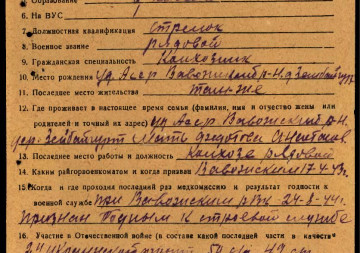 6. На ВУС
7. Должностная квалификация стрелок
8. Военное звание рядовой
9. Гражданская специальность Колхозник
10. Место рождения Уд. Асср Вавожский р-н д.
11. Последнее место жительства там же
12. Где проживает в настоящее время семья (фамилия, имя и отчество жены или
родителей и точный их адрес) Уд Асср Вавожский р-н
дер. Мать
13. Последнее место работы и должность Колхоз рядовой
14. Каким райгорвоенкоматом и когда призван Вавожским 17.4.43г.
15. Когда и где проходил последний раз медкомиссию и результат годности к
военной службе при Вавожском рвк 24-8-44г.
признан Годным к строевой службе
16. Участие в Отечественной войне (в составе какой последней части и в качестве